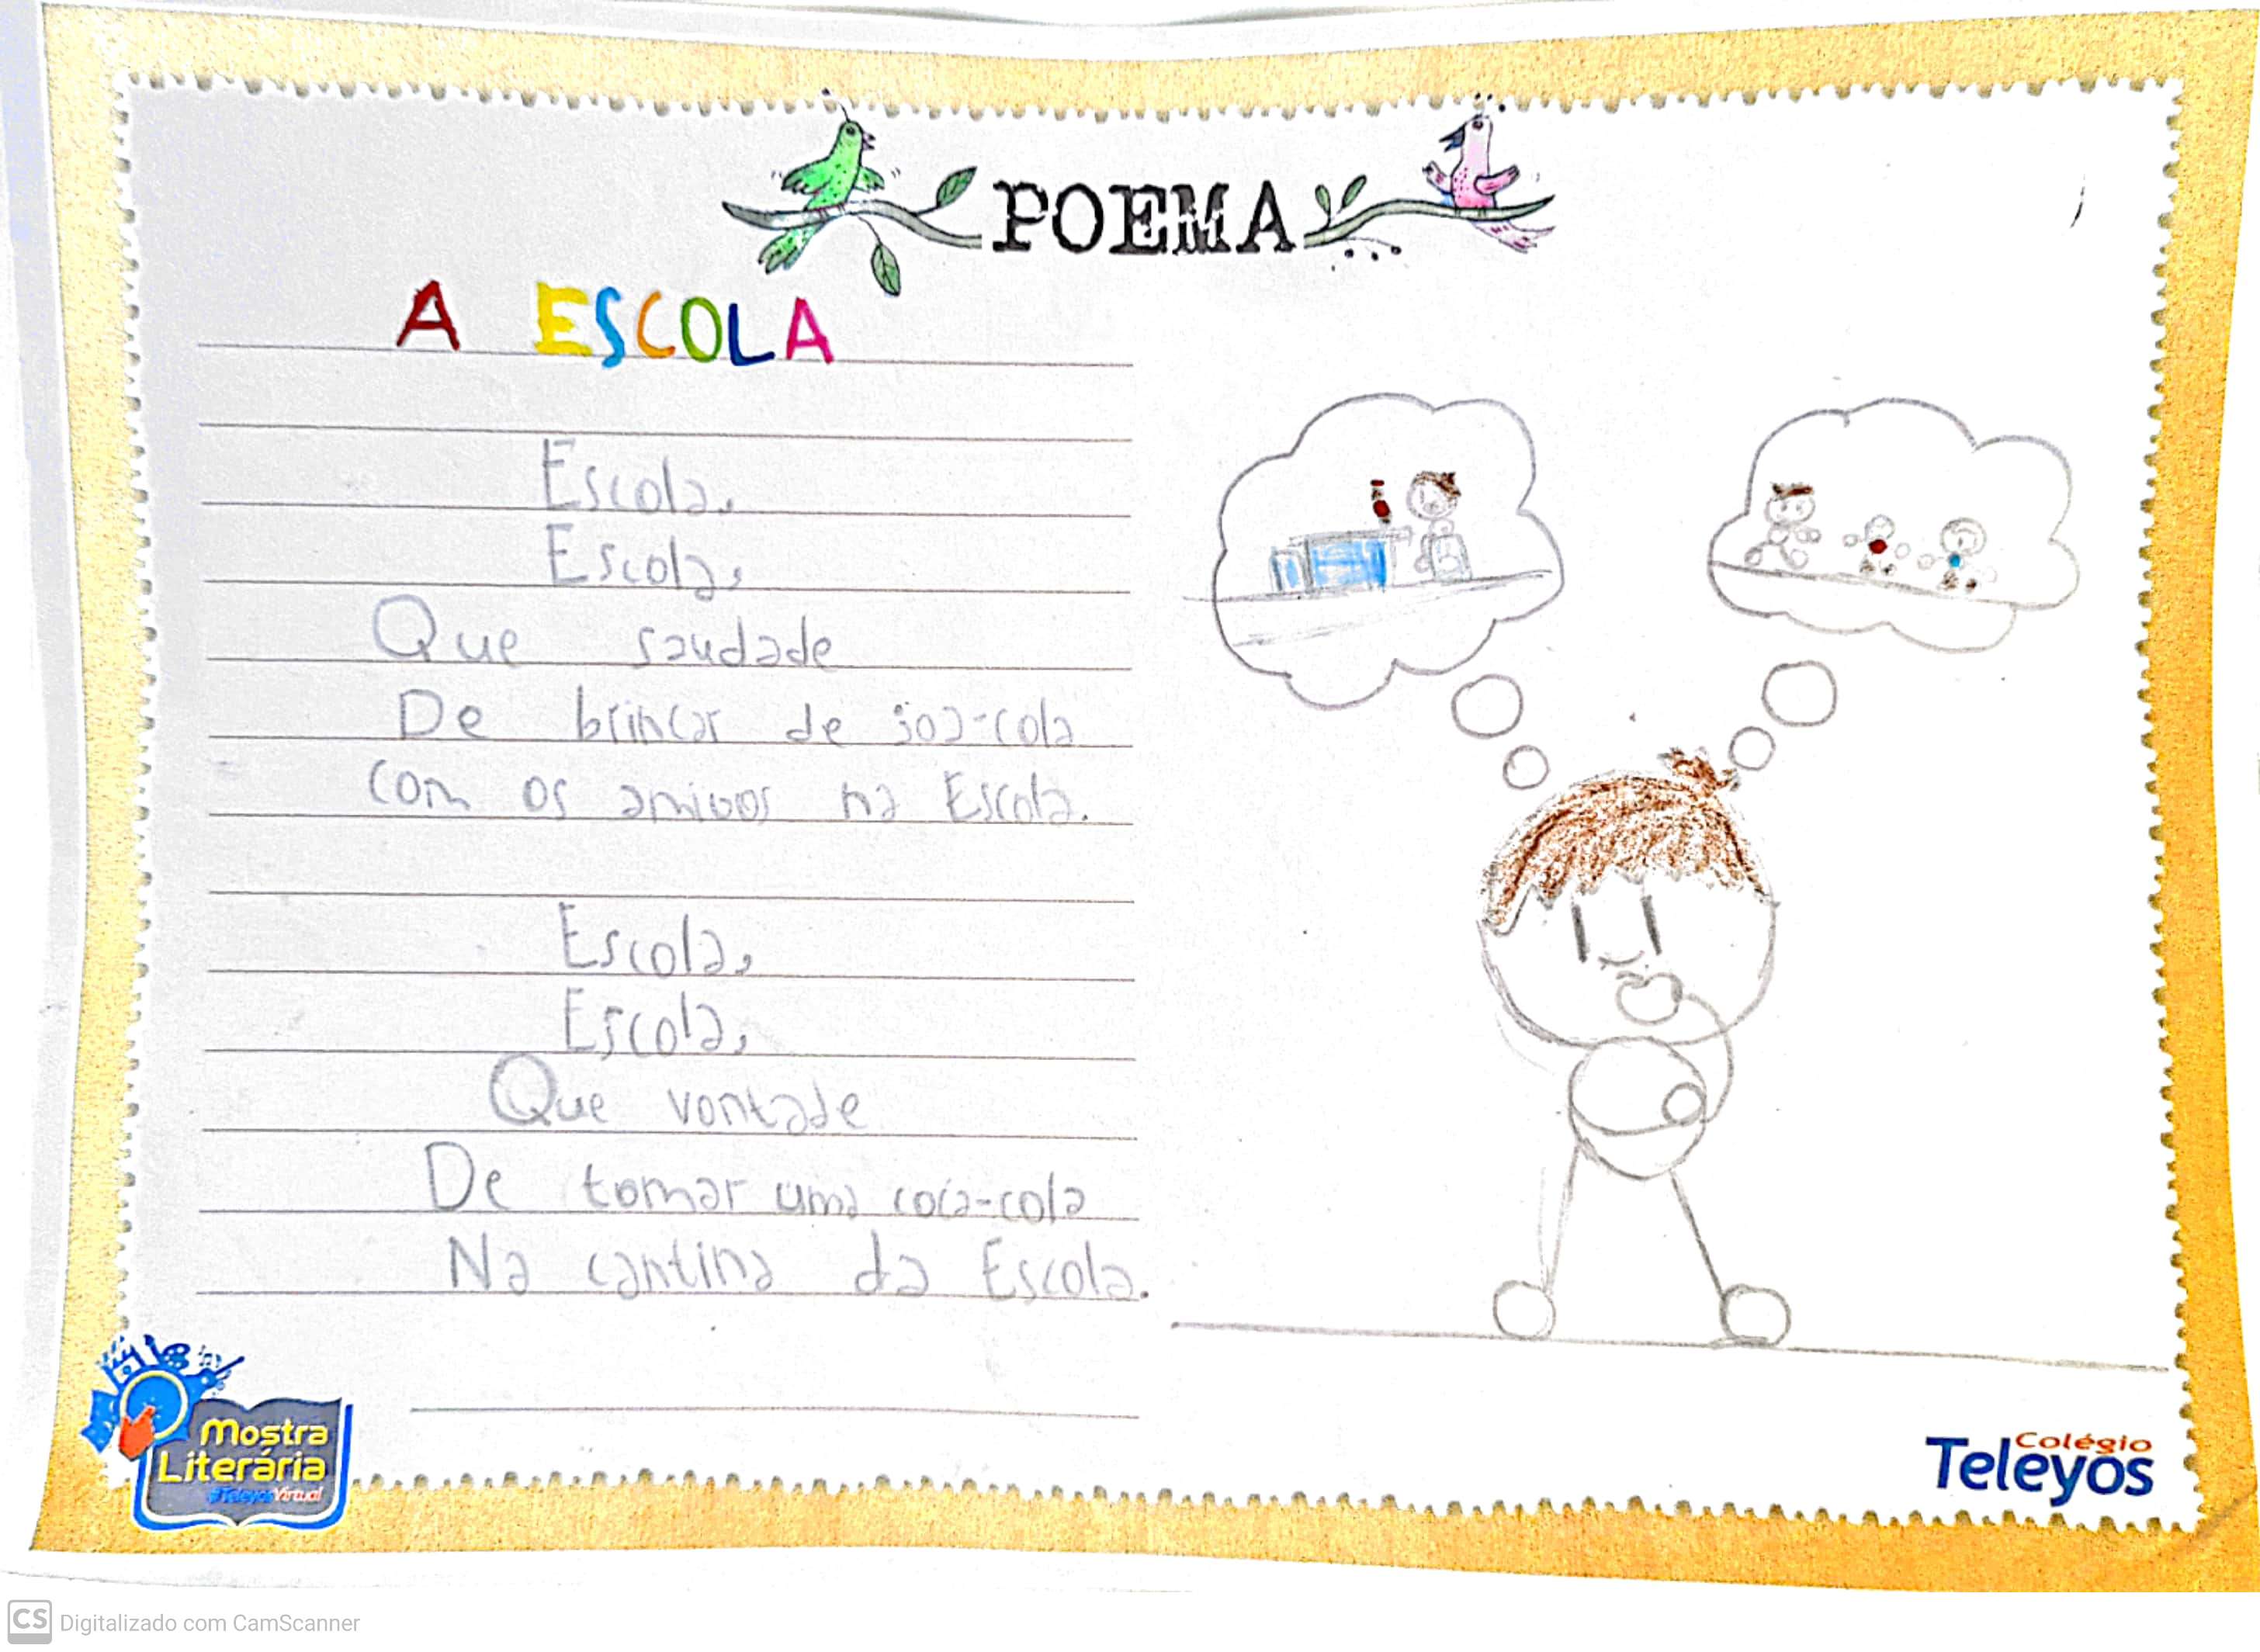 POEMA
A ESCOLA
Escola,
Escola,
Que saudade
De brincar de joa-cola
Com os amigos na Escola.
Escola,
Escola,
Que vontade
De tomar uma coca-cola
Na cantina da Escola.
Mostra
Literária
#TeleyosVirtual
Colégio
Teleyos
CS Digitalizado com CamScanner